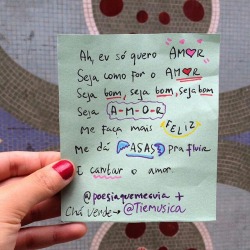 Ah, eu só quero AMOR
Seja como for o AMOR
Seja bom, seja bom, seja bom
Seja A-M-O-R
Me faça mais FELIZ
Me dá ASAS pra fluir
E cantar o amor
@poesiaquemeguia +
Chá Verde → @Tiemusica